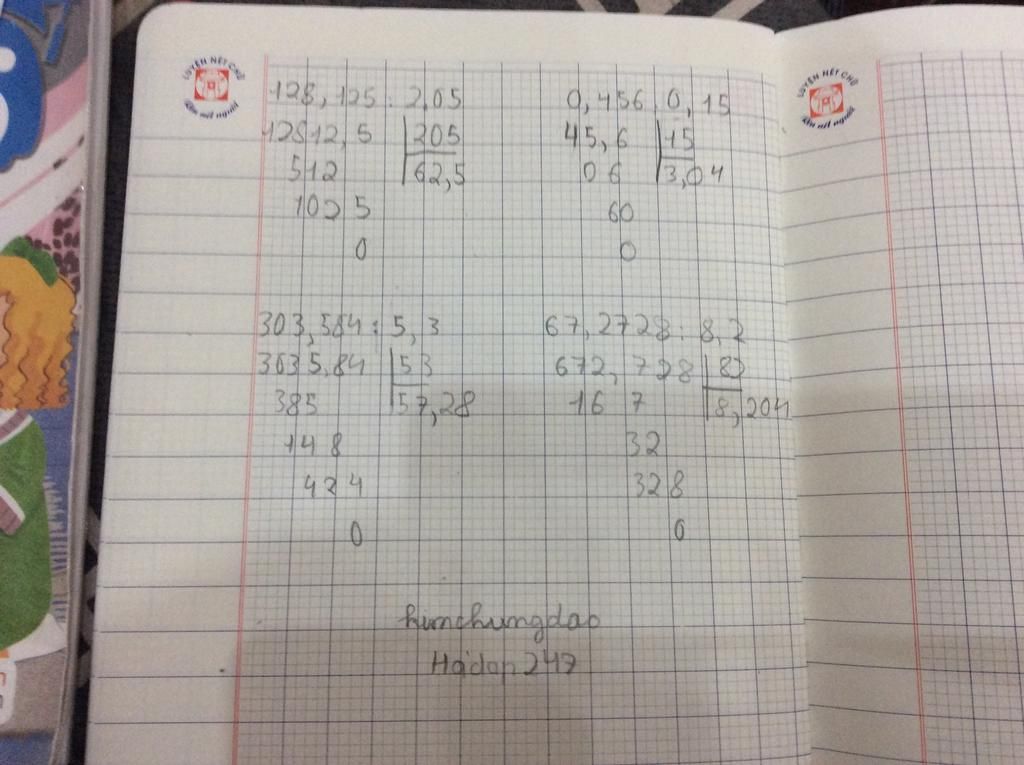 LUYỆN NÉT CHỮ
Rèn nết người
128,125 : 2,05
12812,5 205
512 62,5
1025
0
0,456 0,15
45,6 15
06 3,04
60
0
303,584 : 5,3
3035,84 53
385 57,28
148
424
0
67,2728 : 8,2
672,728 82
16 7 8,204
32
328
0
humchungdap
Hỏidap247
LUYỆN NÉT CHỮ
Rèn nết người